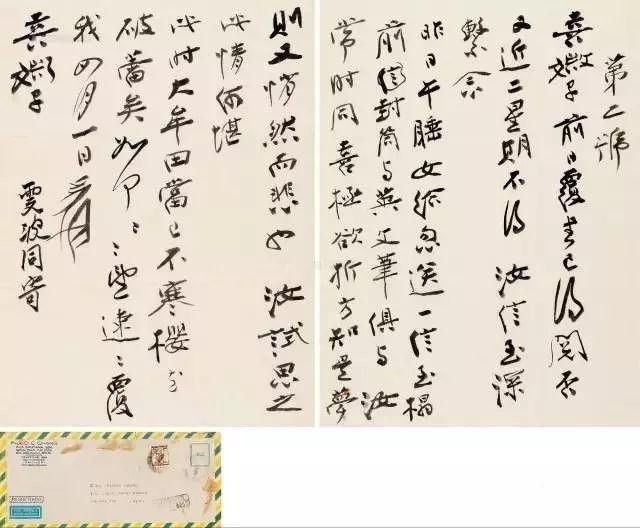 第二號
喜媺子 前日覆書已得閱否
又近二星期不得 汝信至深
繫念
昨日午睡女給忽送一信至榻
前信封筒與英文筆俱與 汝
常時同喜極欲折方知是夢
則又悄然而悲也 汝試思之
此情何堪
此時大牟田當已不寒櫻花
破蕾矣如何〻〻望速〻覆
我四月一日爰
喜媺子
雯波同寄